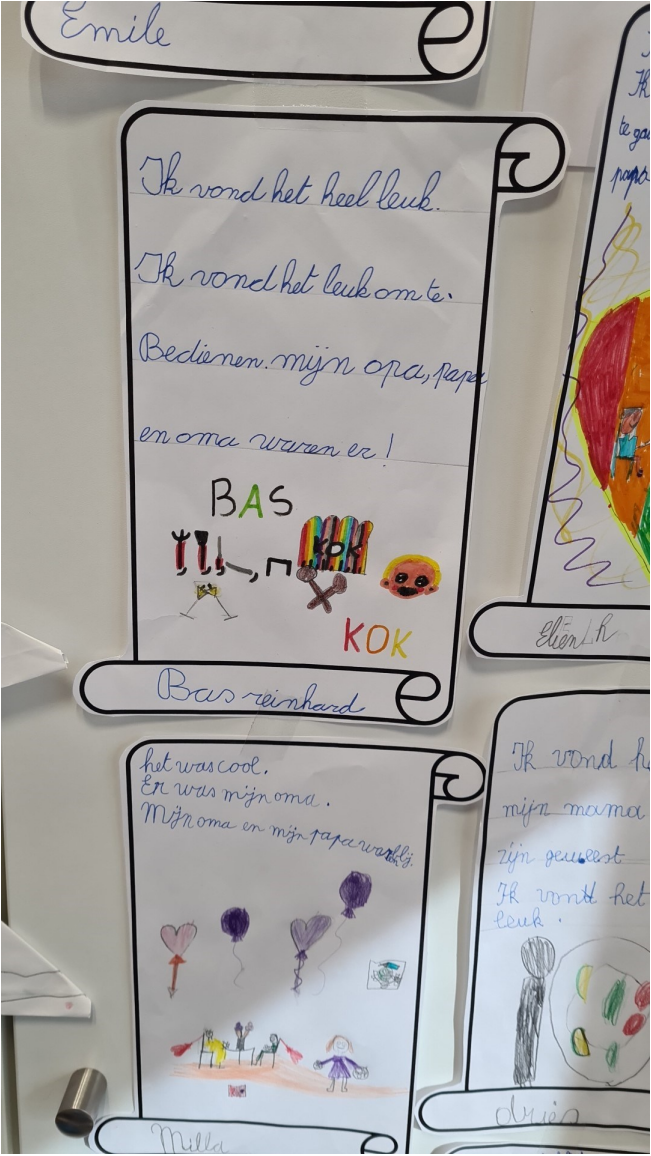 Emile
Ik vond het heel leuk.
Ik vond het leuk om te.
Bedienen. mijn opa, papa
en oma waren er!
BAS
KOK
KOK
Bas reinhard
te ga
papa
Eliën h
het was cool.
Er was mijn oma.
Mijn oma en mijn papa
Milla
Ik vond he
mijn mama
zijn geweest
Ik vondt het
leuk.
driës